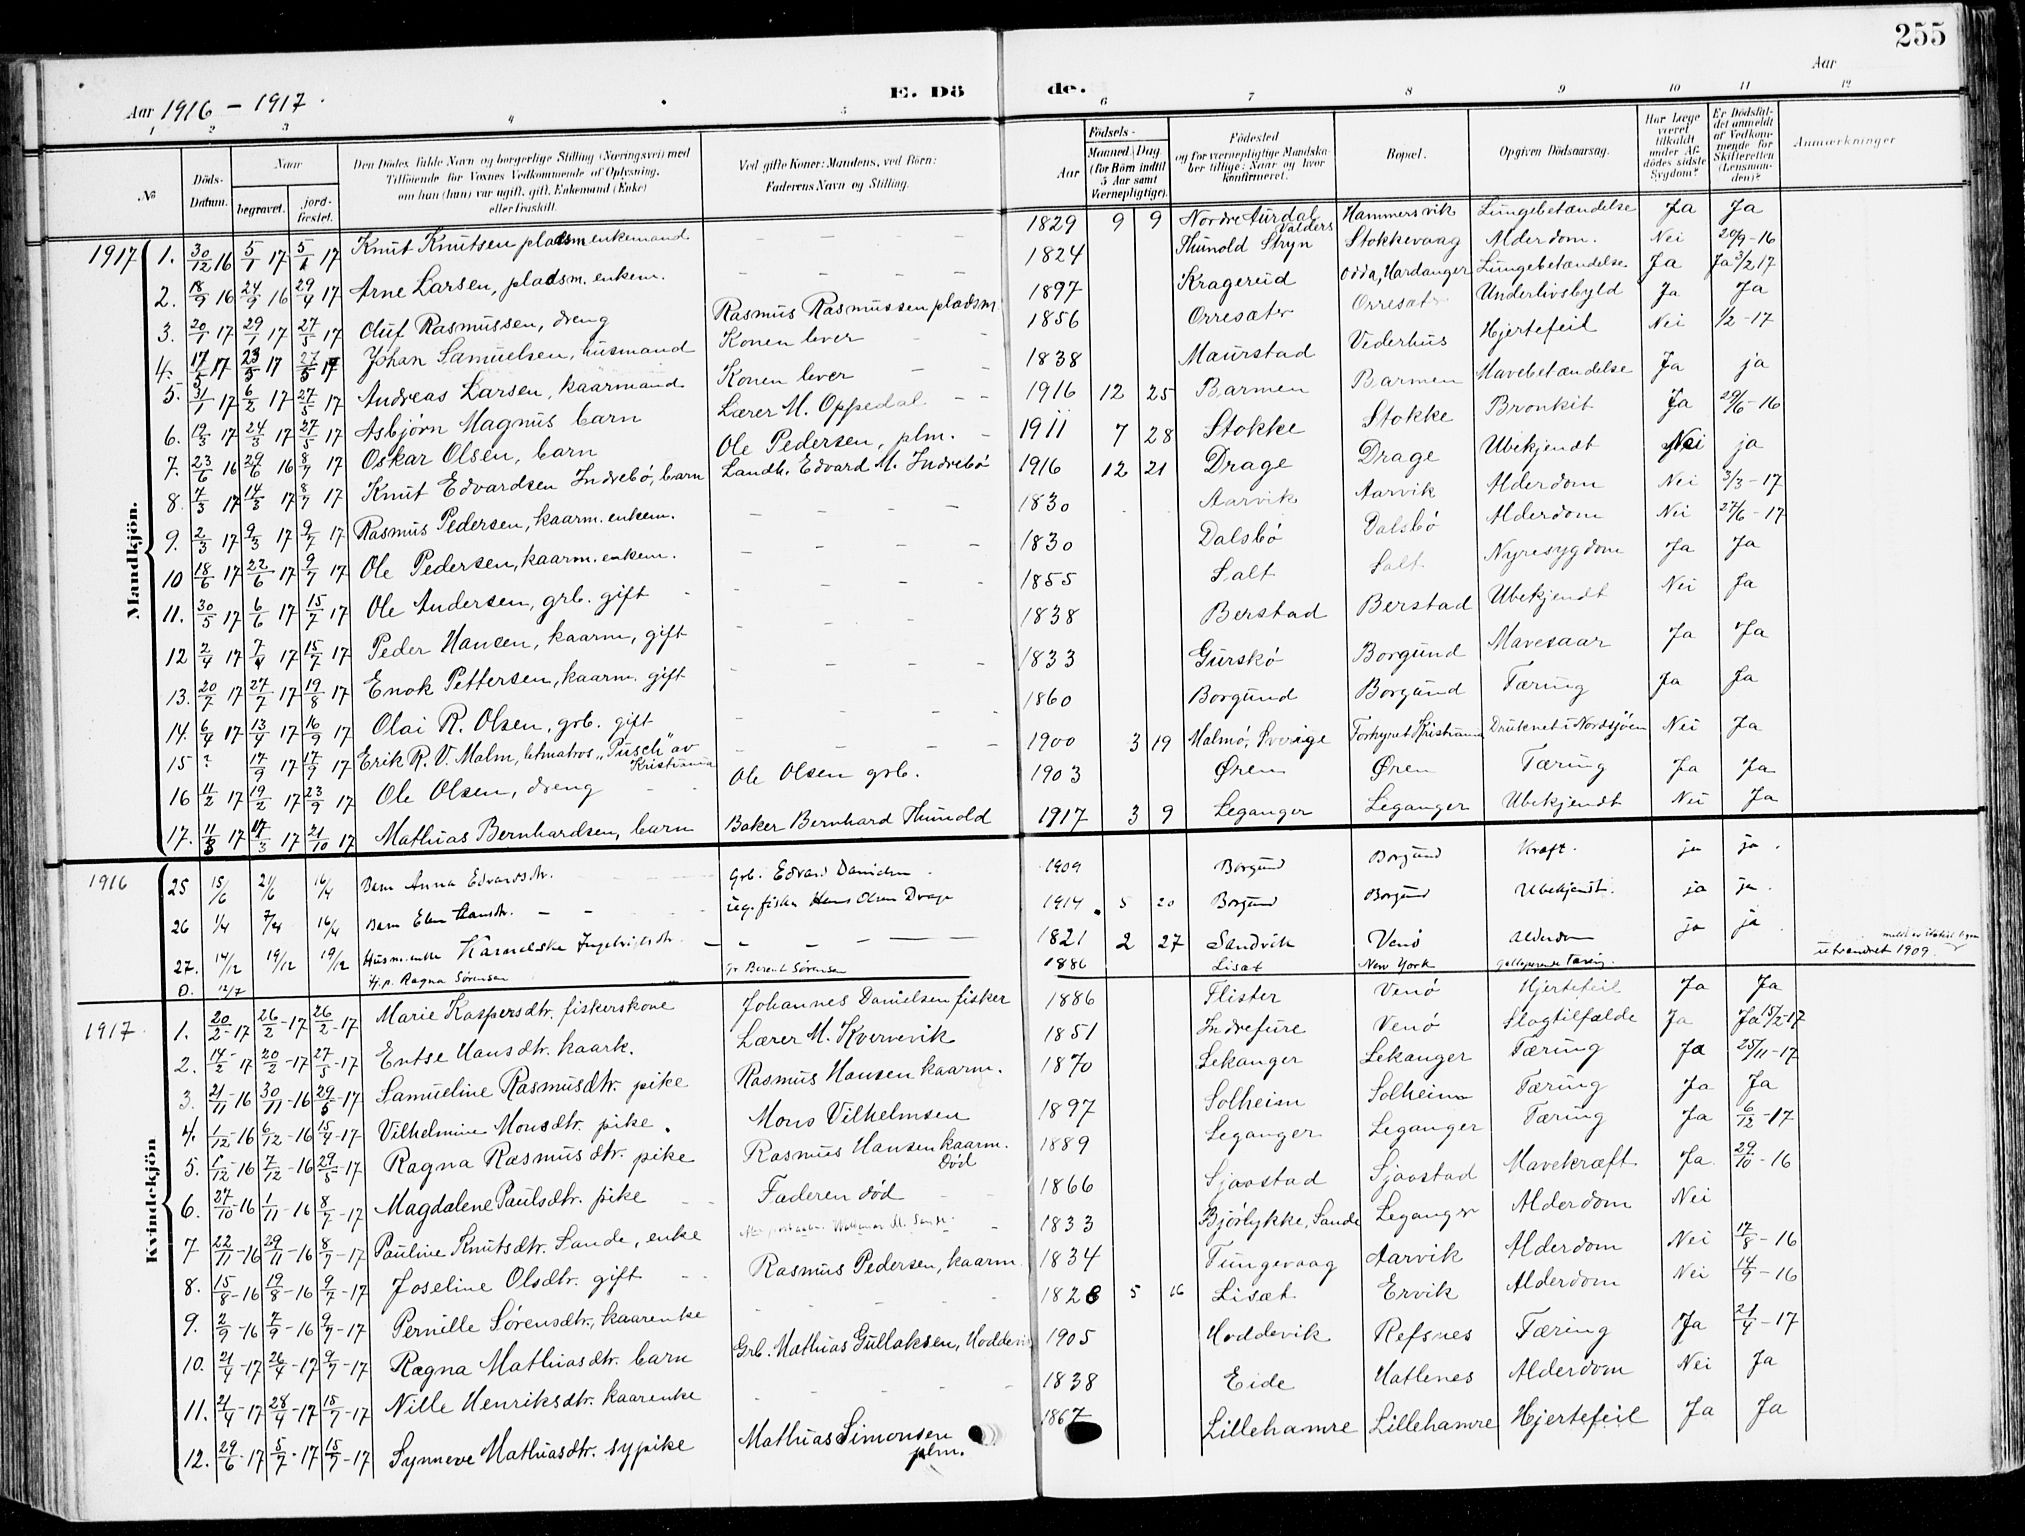 255
Aar 1916 - 1917.
E. Dö de.
Aar
1 2 3 4 5 6 7 8 9 10 11 12
№
Döds-Datum.
Naar
begravet.
jord-festet.
Den Dödes fulde Navn og borgerlige Stilling (Næringsvei) med
Tilföiende for Voxnes Vedkommende af Oplysning,
om han (hun) var ugift, gift, Enkemand (Enke)
eller fraskilt.
Ved gifte Koner: Mandens, ved Börn:
Faderens Navn og Stilling.
Födsels-
Aar
Maaned. Dag
(for Börn indtil
5 Aar samt
Værnepligtige).
Födested
og for værnepligtige Mandska-
ber tillige: Naar og hvor
konfirmeret.
Bopæl.
Opgiven Dödsaarsag.
Har Læge
været
tilkaldt
under Af-
dödes sidste
Sygdom?
Er Dödsfal-
det anmeldt
af Vedkom-
mende for
Skifteretten
(Lensman-
den)?
Anmærkninger
Mandkjön.
1917 1. 30/12 16 5/1 17 5/1 17 Knut Knutsen pladsm enkemand – – – 1829 9 9 Nordre Aurdal Valders Hammersvik Lungebetændelse Ja Ja
2. 18/9 16 24/9 16 29/4 17 Arne Larsen, pladsm. enkem. – – – 1824 Thunold Stryn Stokkevaag Alderdom. Nei 20/9-16
3. 20/1 17 29/1 17 27/5 17 Oluf Rasmussen, dreng Rasmus Rasmussen pladsm 1897 Kragereid Odda, Hardanger Lungebetændelse Ja Ja 3/2 17
4. 17/5 17 23/5 17 27/5 17 Johan Samuelsen, husmand Konen lever 1856 Orresæter Orresæter Underlivsbyld Ja Ja
5. 31/1 17 6/2 17 27/5 17 Andreas Larsen, kaarmand Konen lever 1838 Maurstad Vederhus Hjertefeil Nei 1/2-17
6. 19/3 17 24/3 17 27/5 17 Asbjörn Magnus barn Lærer M. Oppedal 1916 12 25 Barmen Barmen Mavebetændelse Ja ja
7. 23/6 16 29/6 16 8/7 17 Oskar Olsen, barn Ole Pedersen, plm. 1911 7 28 Stokke Stokke Bronkit Ja 29/6-16
8. 7/3 17 14/3 17 8/7 17 Knut Edvardsen Indrebö, barn Landh. Edvard M. Indrebö 1916 12 21 Drage Drage Ubekjendt Nei ja
9. 2/3 17 9/3 17 9/7 17 Rasmus Pedersen, kaarm. enkem. – – – 1830 Aarvik Aarvik Alderdom Nei 3/3-17
10 18/6 17 22/6 17 9/7 17 Ole Pedersen, kaarm. enkem. – – – 1830 Dalsbö Dalsbö Alderdom Nei 27/6-17
11. 30/5 17 6/6 17 15/7 17 Ole Andersen, grb. gift – – – 1855 Salt Salt Nyresygdom Ja Ja
12 2/4 17 7/4 17 15/7 17 Peder Hansen, kaarm, gift – – – 1838 Berstad Berstad Ubekjendt Nei Ja
13. 20/7 17 27/7 17 19/8 17 Enok Pettersen, kaarm. gift – – – 1833 Gurskö Borgund Mavesaar Ja Ja
14. 6/4 17 13/4 17 16/9 17 Olai R. Olsen, grb. gift – – – 1860 Borgund Borgund Tæring Ja Ja
15 ? 17/9 17 17/9 17 Erik R. V. Malm, letmatros „Pusch" av Kristiania – – – 1900 3 19 Malmö, Sverige Forhyret Kristiania Druknet i Nordsjöen Nei Ja
16 11/2 17 19/2 17 23/9 17 Ole Olsen, dreng Ole Olsen grb. 1903 Øren Øren Tæring Ja Ja
17. 11/3 17 17/3 17 21/10 17 Mathias Bernhardsen, barn Baker Bernhard Thunold 1917 3 9 Leganger Leganger Ubekjendt Nei Ja
1916 25 15/6 21/6 16/4 Barn Anna Edvardsdtr. Grb. Edvard Danielsen 1909 Borgund Borgund Kræft. ja ja.
26 1/4 7/4 16/4 Barn Elen Hansdtr. – – ug. fisker Hans Olsen Drage 1914. 5 20 Borgund Borgund Ubekjendt. ja ja.
27. 14/12 19/12 19/12 Husm.enke Karnelske Ingebrigtsdtr. – – – 1821 2 27 Sandvik Venö Alderdom ja ja
0. 12/7 Hj.p. Ragna Sørensen Gr Berent Sørensen 1886 Lisæt New York Galloperende Tæring. utvandret 1909.
Kvindekjön
1917 1. 20/2-17 26/2-17 26/2-17 Marie Kaspersdtr. fiskerskone Johannes Danielsen fisker 1886 Flister Venö Hjertefeil Ja Ja
2. 14/2-17 20/2-17 27/5-17 Entse Hansdtr. kaark. Lærer M. Kvernevik 1851 Indrefure Venö Slagtilfælde Ja Ja 15/2-17
3. 21/11-16 30/11-16 29/5-17 Samueline Rasmusdtr. pike Rasmus Hansen kaarm. 1870 Lekanger Lekanger Tæring Ja 25/11-17
4. 1/12-16 6/12-16 15/4-17 Vilhelmine Monsdtr. pike. Mons Vilhelmsen 1897 Solheim Solheim Tæring Ja Ja
5. 1/12-16 7/12-16 29/5-17 Ragna Rasmusdtr. pike Rasmus Hansen kaarm. Död 1889 Leganger Leganger Tæring Ja 6/12-17
6. 27/10-16 1/11-16 8/7-17 Magdalene Paulsdtr. pike Faderen död 1866 Sjaastad Sjaastad Mavekræft Ja. 29/10-16
7 22/11-16 29/11-16 8/7-17 Pauline Knutsdtr. Sande, enke 1833 Bjørlykke, Sande Leganger Alderdom Nei
8. 15/8-16 19/8-16 9/7-17 Joseline Olsdtr. gift Rasmus Pedersen, kaarm. 1834 Tungevaag Aarvik Alderdom Nei 17/8-16
9. 2/9-16 7/9-16 9/7-17 Pernille Sörensdtr, kaarenke – – – 1828 5 16 Lisæt Ervik Alderdom Nei 14/9-16
10. 21/4-17 26/4-17 9/7-17 Ragna Mathiasdtr. barn Grb. Mathias Gullaksen, Hoddevik 1905 Hoddevik Refsnes Tæring Ja 21/4-17
11. 21/4-17 28/4-17 15/7-17 Nille Henriksdtr. kaarenke – – – 1838 Eide Hatlenes Alderdom Nei Ja
12. 29/6-17 5/7-17 15/7-17 Synneve Mathiasdtr. sypike Mathias Simonsen plm. 1867 Lillehamre Lillehamre Hjertefeil Ja Ja